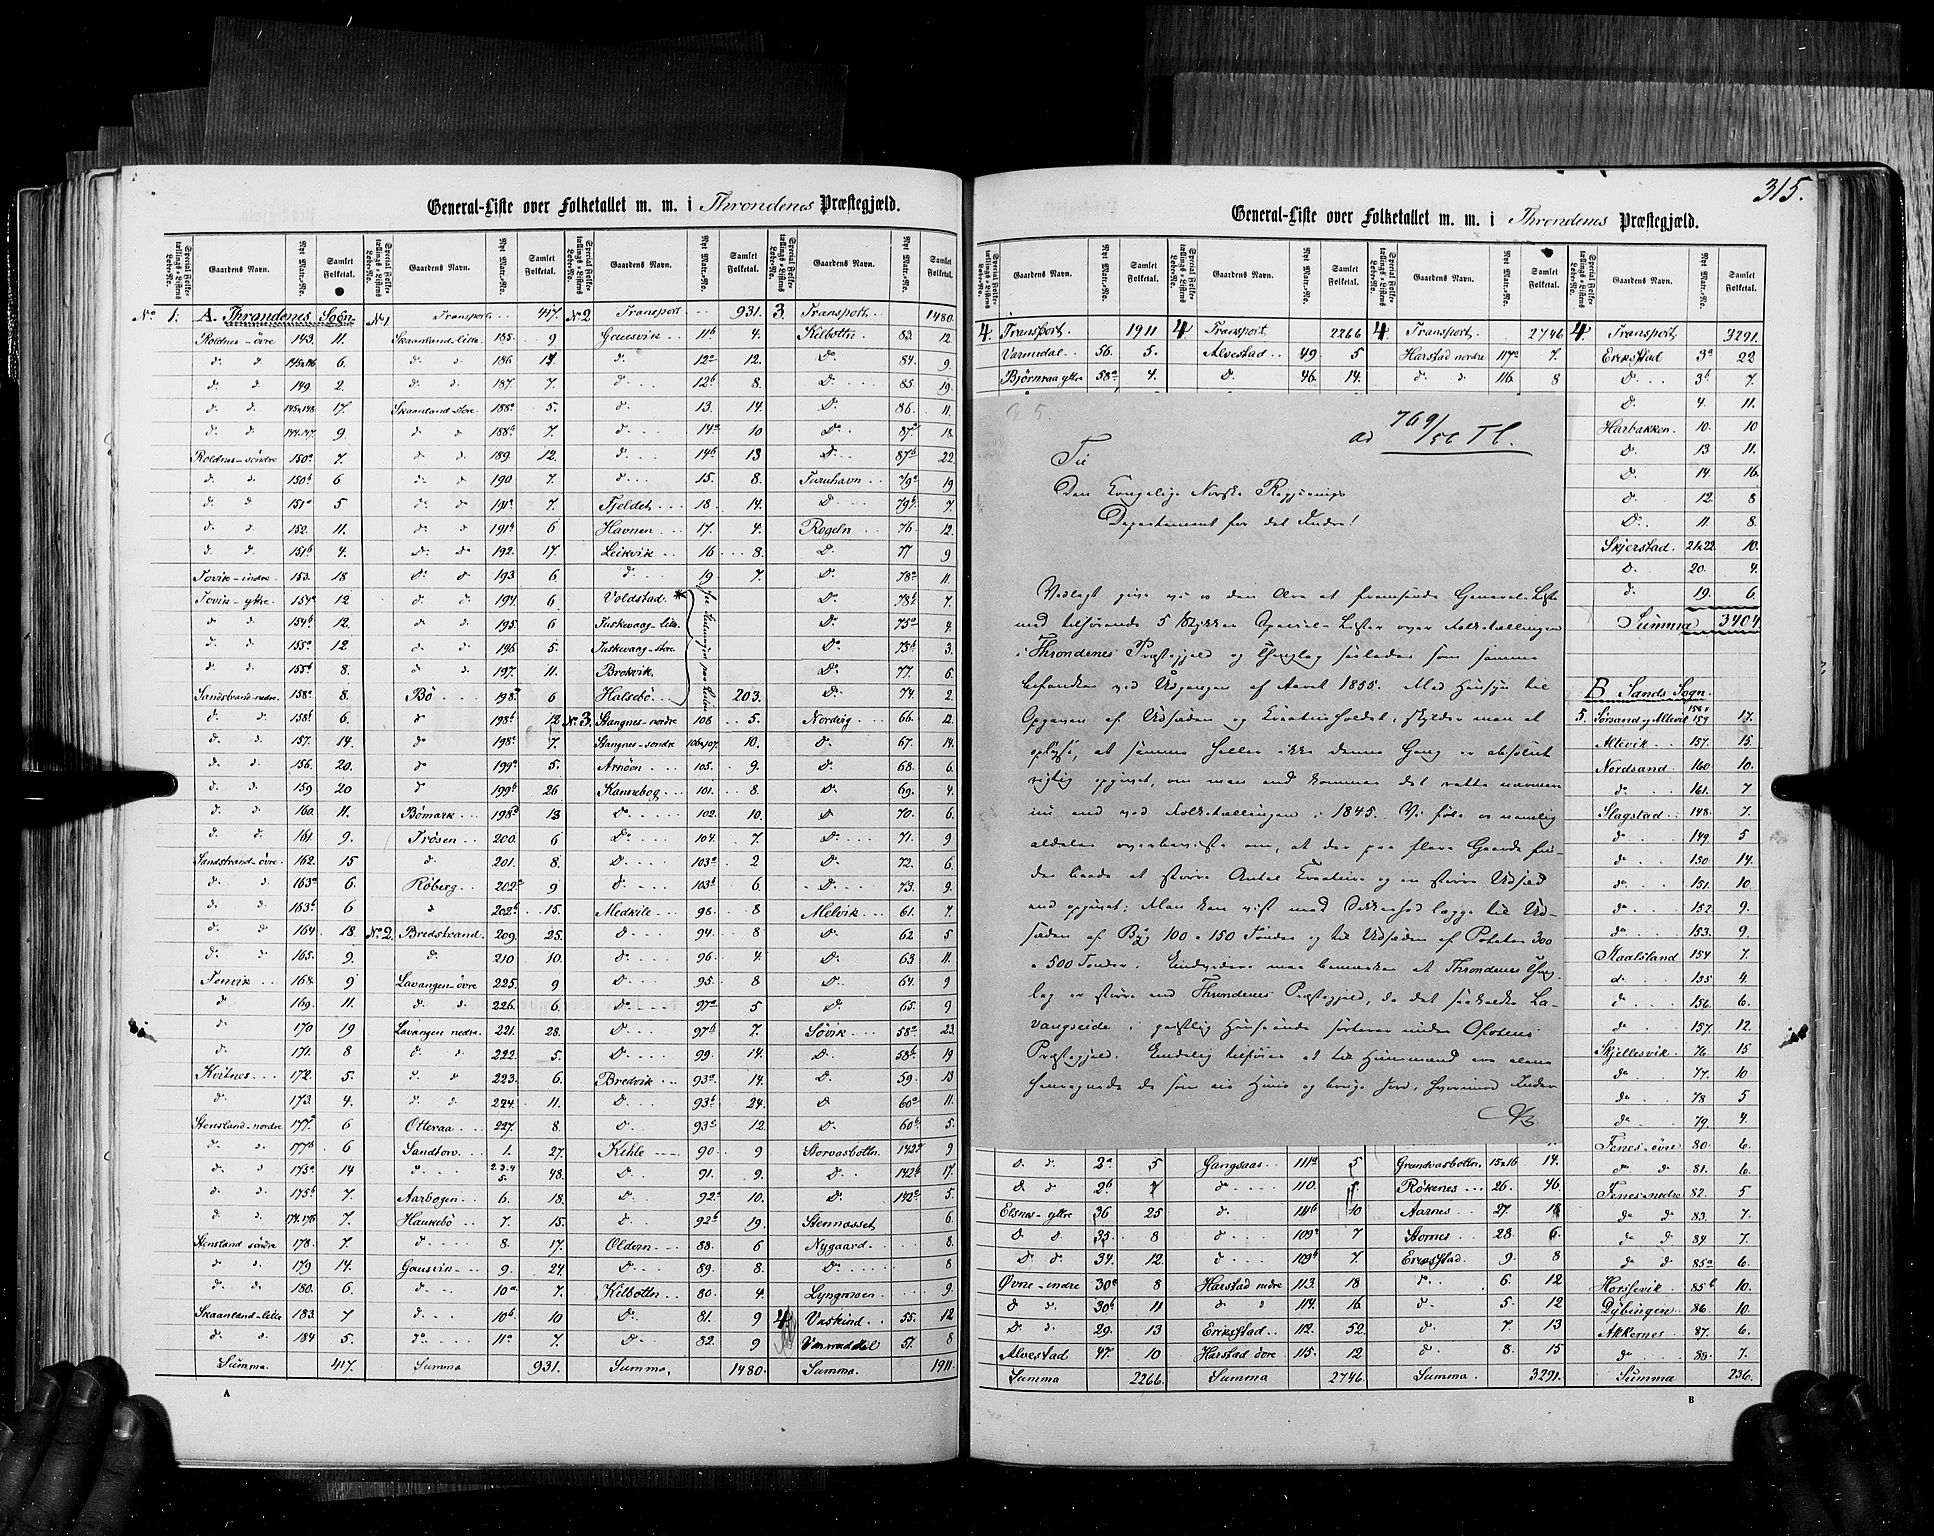 General-Liste over Folketallet m. m. i Throndenes Præstegjæld.
Special Folketællings-Listens Løbe-No. Gaardens Navn. Nyt Matr.-No. Samlet Folketal.
No 1. A. Throndenes Sogn
Roldnes - övre 143. 11.
d. d. 145 & 146 6.
d. d. 149. 2.
d. d. 145 & 148 17.
d. d. 144.147. 9.
Roldnes - söndre 150a 7.
d. d. 150b 6
d. d. 151a 5
d. d. 152. 11.
d. d. 151b 4.
Tovik - indre 153. 18
Tovik - yttre 154a 12
d. d. 154b 12.
d. d. 155a 12
d. d. 155b 8.
Sandstrand - nedre 158a 8.
d. d. 158b 6.
d. d. 157. 14.
d. d. 156. 20.
d. d. 159 20
d. d. 160. 11.
d. d. 161. 9.
Sandstrand - övre 162. 15
d. d. 163a 6.
d. d. 163b 6
d. d. 164 18.
d. d. 165. 9.
Tenvik 168. 9
d. 169. 11.
d. 170 19
d. 171. 8
Kvitnes 172. 5.
d. 173. 4.
Stensland - nordre 177a 6
d. d. 177b 6.
d. d. 175a 14
d. d. 175b 7.
d. d. 174.176 7.
Stensland söndre 178. 7.
d. d. 179 14.
d. d. 180. 6.
Skaanland - lille 183. 7
d. d. 184 5.
Summa 417.
No 1 Transport 417.
Skaanland - lille 185. 9
d. d. 186 17
d. d. 187. 7.
Skaanland - store 188a 5.
d. d. 188b 7.
d. d. 189. 12.
d. d. 190 7.
d. d. 191a 7.
d. d. 191b 6
d. d. 192. 17.
d. d. 193 6.
d. d. 194. 6
d. d. 195. 6
d. d. 196 5.
d. d. 197. 11.
Bö 198a 6
d. 198b 12.
d. 198c 7.
d. 199a 5.
d. 199b 26
Bömark 198d 13
Trösen 200. 6
d. 201. 8.
Röberg 202a 9
d. 202b 15.
No 2. Bredstrand 209. 25.
d. 210 10.
Lavangen - övre 225. 9
d. d. 226. 6
Lavangen nedre 221. 28.
d. d. 222. 5.
d. d. 223. 6.
d. d. 224. 11.
Otteraa 227. 8.
Sandtorv 1. 27.
d. 2.3.4 5. 48.
Aarbogen 6. 18.
Haukebö 7. 15.
d. 8. 17.
Gausvik 9. 24
d. 10a 7.
d. 10b 10
d. 11a 7.
Summa 931.
No 2 Transport 931.
Gausvik 11b 4.
d. 12a 12.
d. 12b 8.
d. 13. 14.
d. 14a 10
d. 14b 13
d. 15. 8.
Fjeldet 18. 14.
Havnen 17. 4.
Leikvik 16 8.
d. 19 7.
Voldstad *
Tuskevaag - lille
Tuskevaag - store
Brokvik
Halsebö 203.
No 3. Stangnes - nordre 108 5.
Stangnes - sondre 106 & 107. 10.
Arnöen 105. 9.
Kannebog 101. 8
D. 102. 10.
D. 104. 7.
D. 103a 2
D. 103b 6.
Medkile 93. 8
D. 94 8
D. 96. 4
D. 95 8
D. 97a 5
D. 97b 7
D. 99. 14.
Bredvik 93a 14.
D. 93b 24.
D. 93c 12.
Kihle 90. 9
D. 91. 9.
D. 92a 10.
D. 92b 19.
Oldern 88. 6
D. 89. 8.
Kilbottn 80. 4.
D. 81. 9
D. 82. 9
Summa 1480.
3. Transport 1480.
Kilbottn 83. 12
D. 84. 9.
D. 85. 19.
D. 86. 11.
D. 87a 18
D. 87b 22.
Furuhavn 79a 19
D. 79b 7.
Rogeln 76. 12.
D. 77 9
D. 78a 11.
D. 78b 7.
D. 75a 4.
D. 75b 3.
D. 77. 6.
D. 74. 2.
Nordvig 66. 12.
D. 67. 14.
D. 68. 6.
D. 69. 4.
D. 70. 6.
D. 71. 9
D. 72. 6.
D. 73. 9.
Melvik 61. 7.
D. 62 5
D. 63 11.
D. 64. 9
D. 65. 9
Sövik 58a 23.
D. 58b 19
D. 59. 13
D. 60a 11.
D. 60b 5.
Storvasbottn 142a 9
D. 142b 17
D. 140a 5.
Stennasset 6.
Nygaard 8.
D. 8
Lyngmoen 9.
4 Vaskind 55. 12
Varmeddal 57. 8
Summa. 1911.
A
315.
General-Liste over Folketallet m. m. i Throndenes Præstegjæld.
Special Folketællings-Listens Løbe-No. Gaardens Navn. Nyt Matr.-No. Samlet Folketal.
4. Transport 1911
Varmedal 56. 5.
Björnraa yttre 58a 4.
4 Transport 2266
Alvestad 49 5
D. 46. 14.
4 Transport 2746
Harstad nordre 117a 7.
d. d. 116. 8
ad 769/56 Tl.
Til
Den Kongelige Norske Regjerings
Departement for det Indre!
Vedlagt give vi os den Ære at fremsende General-Liste
med tilhørende 5 Stykker Special-Lister over Folketællingen
i Throndenes Præstegjeld og Thinglag saaledes som samme
befandtes ved Udgangen af Aaret 1855. Med Hensyn til
Opgaven af Udsæden og Kreaturholdet, skylder man at
oplyse, at samme heller ikke denne Gang er absolut
rigtig opgivet, om man end kommer det rette nærmere
nu end ved Folketællingen i 1845. Vi føle os nemlig
aldeles overbeviste om, at der paa flere Gaarde fin-
des baade et større Antal Kreature og en større Udsæd
end opgivet; Man kan vist med Sikkerhed lægge til Ud-
sæden af Byg 100 a 150 Tönder og til Udsæden af Poteter 300
a 500 Tønder. Endvidere maa bemærkes at Throndenes Thing-
lag er større end Throndenes Præstegjeld, da det saakaldte La-
vangseide i geistlig Henseende sorterer under Ofotens
Præstegjeld. Endelig tilføies at til Huusmænd ere alene
henregnede de som eie Huus og bruge Jord, hvorimod Inder
D. d. 2a 5
D. d. 2b 7
Elsnes - yttre 36 25
D. d. 35. 8
D. d. 34. 12.
Övre - indre 30a 8
D. d. 30b 11
D. d. 29. 13
Alvestad 47. 10
Summa 2266.
Gangsaas 111a 5
d. 110.
d. 111b 10
d. 109a 7
d. 109b 7.
Harstad nedre 113. 18
d. d. 114. 16.
Erikstad 112. 52.
Harstad övre 115. 12
Summa 2746
Grundvasbottn 15 & 16 14.
Rökenes 26. 46.
Aarnes 27. 18
Stornes 28. 6.
Erikstad. 9. 8
d. 6. 12
d. 5. 12
d. 7. 13
d. 8. 15
Summa. 3291.
4. Transport 3291.
Erikstad 3a 22
D. 3b 7.
D. 4. 11.
Harbakken 10. 10
D. 13 11.
D. 14 16.
D. 12. 8
D. 11. 8.
Skjerstad 21 & 22. 10.
D. 20. 4.
d. 19. 6.
Summa 3404
B Sands Sogn.
5. Sörsand og Altevik 158 & 159 17.
Altevik 157. 15.
Nordsand 160 10.
d. 161. 7
Slagstad 148. 7.
d. 149 5
d. 150 14.
d. 151. 10
d. 152 9.
d. 153. 9
Kaalsland 154 7.
d. 155 4.
d. 156. 6.
d. 157. 12.
Skjellesvik 76. 15
d. 77. 10
d. 78 5
d. 79. 4.
Fenes - övre 80. 6.
d. d. 81. 6.
Fenes - nedre 82. 5
d. d. 83. 7.
d. d. 84 7.
d. d. 85a 6.
Horsevik 85b 10.
Dybingen 86. 10.
Akkernes 87. 6.
d. 88. 7.
Summa 236.
B